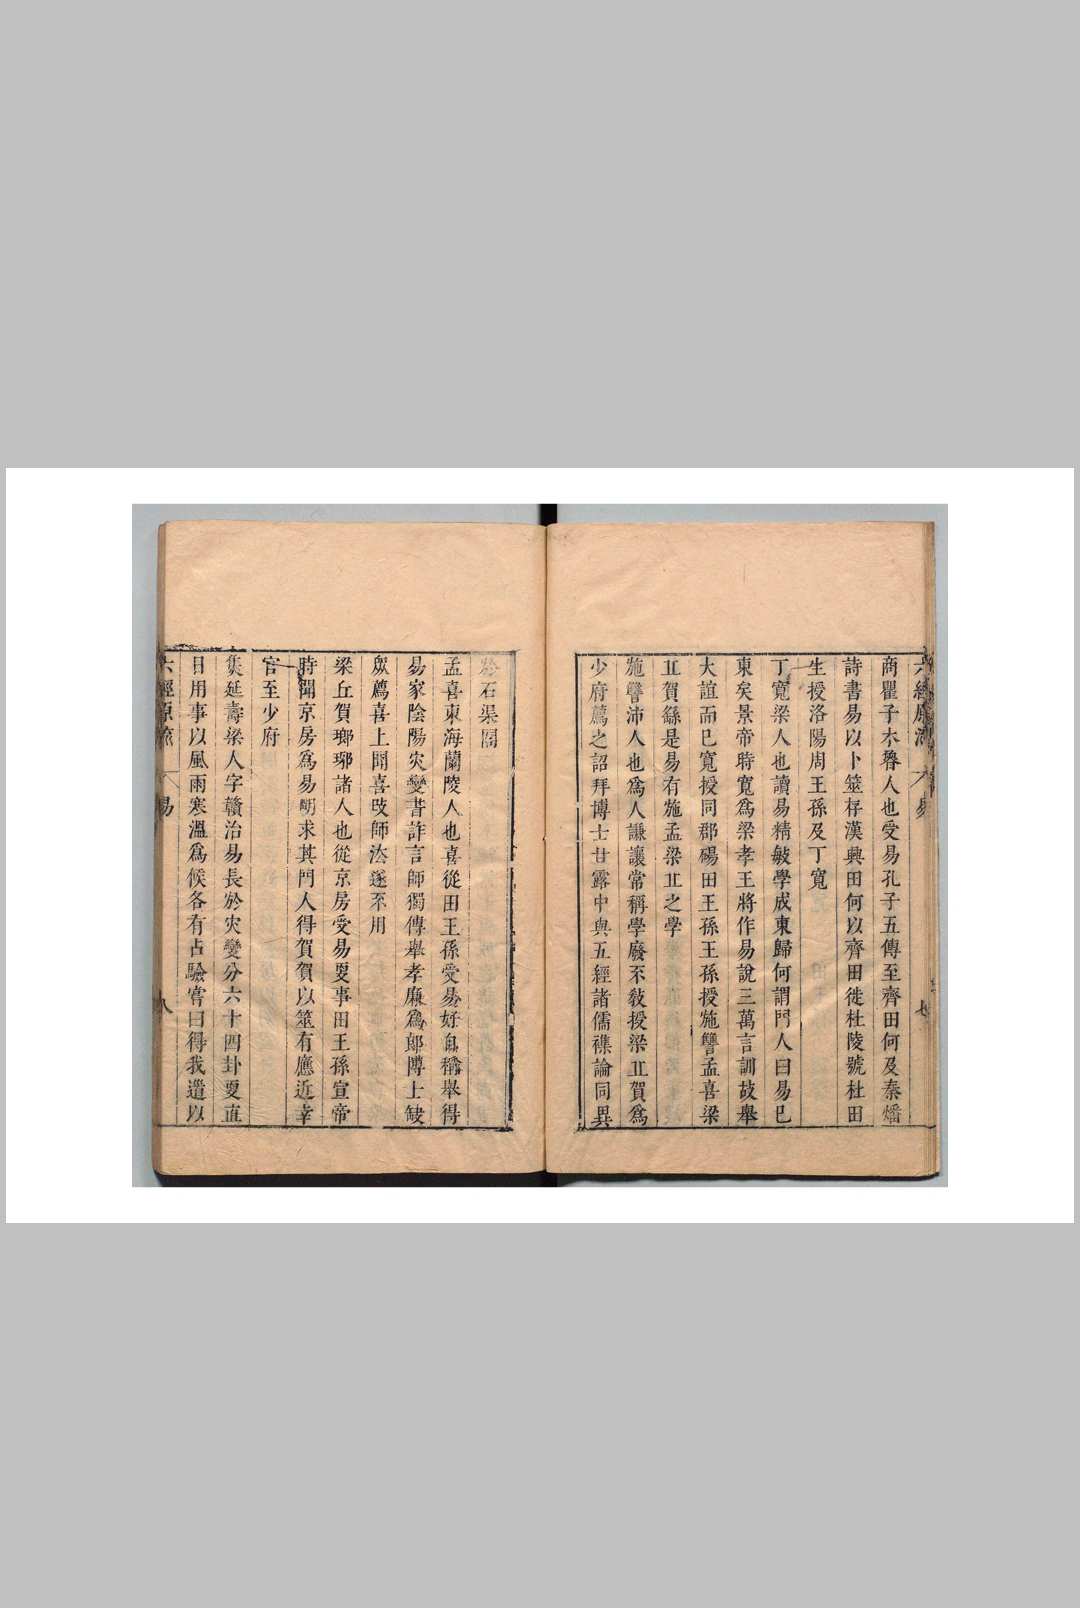 商瞿子木魯人也受易孔子五傳至齊田何及秦燔
詩書易以卜筮存漢興田何以齊田徙杜陵號杜田
生授洛陽周王孫及丁寬
丁寬梁人也讀易精敏學成東歸何謂門人曰易已
東矣景帝時寬為梁孝王將作易說三萬言訓故舉
大誼而已寬授同郡碭田王孫王孫授施讐孟喜梁
丠賀繇是易有施孟梁丠之學
施讐沛人也為人謙讓常稱學廢不敎授梁丠賀為
少府薦之詔拜博士甘露中與五經諸儒襍論同異
於石渠閣
孟喜東海蘭陵人也喜從田王孫受易好自稱舉得
易家陰陽灾變書詐言師獨傳舉孝廉為郎博士缺
眾薦喜上聞喜改師法遂不用
梁丘賀瑯琊諸人也從京房受易更事田王孫宣帝
時聞京房為易明求其門人得賀賀以筮有應近幸
官至少府
焦延壽梁人字贛治易長於灾變分六十四卦更直
日用事以風雨寒溫為候各有占驗嘗曰得我道以
六經原流
易
八